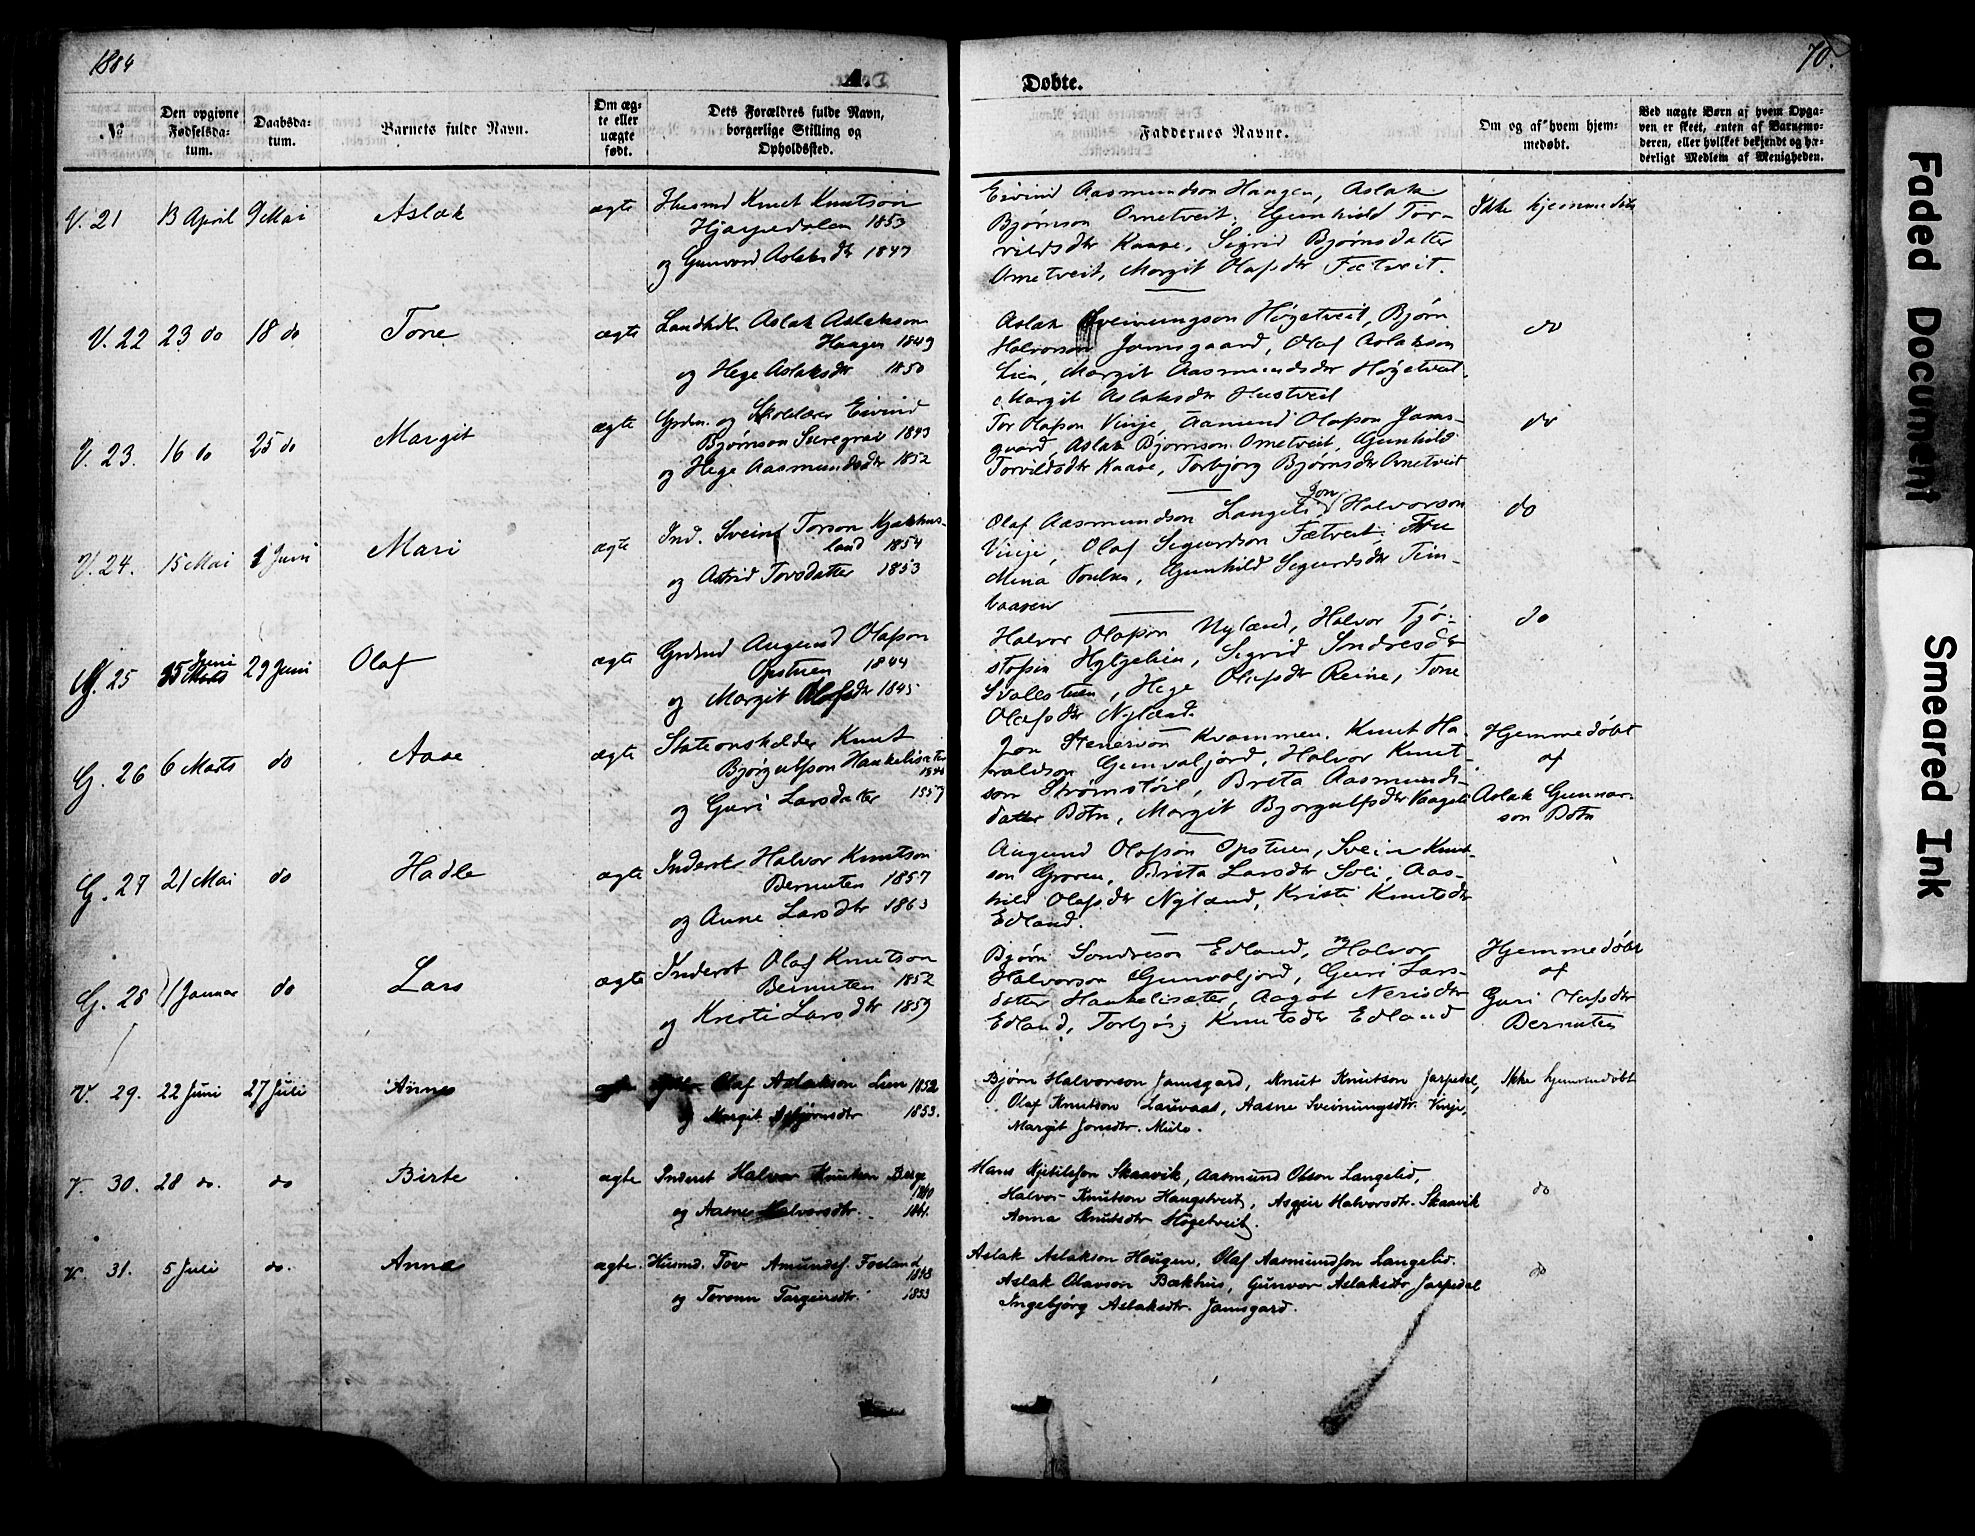 1884
70.
Døbte.
No
Den opgivne Fødselsdatum.
Daabsdatum.
Barnets fulde Navn.
Om ægte eller uægte født.
Dets Forældres fulde Navn, borgerlige Stilling og Opholdssted.
Faddernes Navne.
Om og af hvem hjemmedøbt.
Ved uægte Børn af hvem Opgaven er skeet, enten af Barnemoderen, eller hvilket bekjendt og hæderligt Medlem af Menigheden.
V. 21 13 April 9 Mai Aslak ægte Husmd Knut Knutson
Hjarpedalen 1853
og Gunvord Aslaksdtr 1847
Eivind Aasmundson Haugen, Aslak
Bjørnson Ometveit, Gunhild Tor-
vildsdtr Kaave, Sigrid Bjørnsdatter
Ometveit, Margit Olafsdtr Fætveit.
Ikke hjemmedøbt
V. 22 23 do 18 do Tone ægte Landhdl. Aslak Aslakson
Haugen 1849
og Hege Aslaksdtr 1850
Aslak Sveinungson Høgetveit, Bjørn
Halvorson Jamsgaard, Olaf Aslakson
Lien, Margit Aasmundsdtr Høgetveit,
Margit Aslaksdtr Hustveit
do
V. 23. 16 do 25 do Margit ægte Grdm. og Skolelærer Eivind
Bjørnson 1843
og Hege Aasmundsdtr 1852
Tor Olafson Vinje, Aamund Olafson Jams-
gaard, Aslak Bjørnson Ometveit, Gunhild
Torvildsdtr Kaave, Torbjørg Bjørnsdtr Ometveit
do
V. 24. 15 Mai 1 Juni Mari ægte Ind. Svein Torson Kjækhus-
land 1854
og Astrid Torsdatter 1853
Olaf Aasmundson Langeli, Jon Halvorson
Vinje, Olaf Sigurdson Fætveit,
Mina Poulsen, Gunhild Sigurdsdtr Tein-
baasen
do
G. 25 Juni 29 Juni Olaf ægte Grdmd Augund Olafson
Opstuen 1844
og Margit Olafsdtr 1845
Halvor Olafson Nyland, Halvor Tjø-
stofsen Hylgelien, Sigrid Sondresdtr
Svalestuen, Hege Olafsdtr Reine, Tone
Olafsdtr Nyland.
do
G. 26 6 Marts do Aase ægte Stationsholder Knut
Bjørgulfson Haukelisæter
og Guri Larsdatter 1857
Jon Stenerson Kvammen, Knut Ha-
raldson Gunvaljord, Halvor Knut-
son Strømstøil, Breta Aasmunds-
datter Botn, Margit Bjørgulfsdtr Vaageli
Hjemmedøbt
af
Aslak Gunnar-
son Botn
G. 27 21 Mai do Hadle ægte Inderst Halvor Knutson
Bernuten 1857
og Anne Larsdtr 1863
Augund Olafson Opstuen, Svein Knut-
son Groven, Brita Larsdtr Soli, Aas-
hild Olafsdtr Nyland, Kristi Knutsdtr
Edland.
G. 28 1 Januar do Lars ægte Inderst Olaf Knutson
Bernuten 1852
og Kristi Larsdtr 1859
Bjørn Sondreson Edland, Halvor
Halvorson Gunvaljord, Guri Lars-
datter Haukelisæter, Aagot Nerisdtr
Edland, Torbjørg Knutsdtr Edland
Hjemmedøbt
af
Guri Olafsdtr
Bernuten
V. 29. 22 Juni 27 Juli Anne ægte Olaf Aslakson Lien 1852
og Margit Asbjørnsdtr 1853.
Bjørn Halvorson Jamsgard, Knut Knutson Jarpedal,
Olaf Knutson Lauvaas, Aasne Sveinungsdtr. Vinje,
Margit Jonsdtr. Mulo.
Ikke hjemmedøbt
V. 30. 28 do. do Birte ægte Inderst Halvor Knutson Berge
1860
og Aasne Halvorsdtr. 1861.
Hans Kjetilsson Skaavik, Aasmund Olsson Langelid,
Halvor Knutson Haugetveit, Asgeir Halvorsdtr. Skaavik
Anna Knutsdtr Høgetveit.
do
V. 31. 5 Juli do. Anne ægte. Husmd. Tov Amundss. Fosland
1848
og Torunn Targeirsdtr. 1853
Aslak Aslakson Haugen, Olaf Aasmundsson Langelid.
Aslak Olavson Bækhus, Gunvor Aslaksdtr Jarpedal
Ingebjørg Aslaksdtr. Jamsgard.
do
Faded Document
Smeared Ink